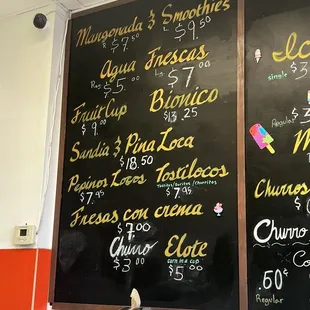 Mangonada & Smoothies
R $7.50 L $9.50
Agua Frescas
Reg $5.00 L $7.00
Fruit Cup Bionico
$9.00 $13.25
Sandia & Pina Loca
$18.50
Pepinos Locos Tostilocos
$7.95 Tostitos/Doritos/Churritos $7.95
Fresas con crema
$7.00
Churro Elote
$3.00 corn in a cup $5.00
Ic
single $3
$3
Regular
Churros
$
Churro
Co
.50¢
Regular